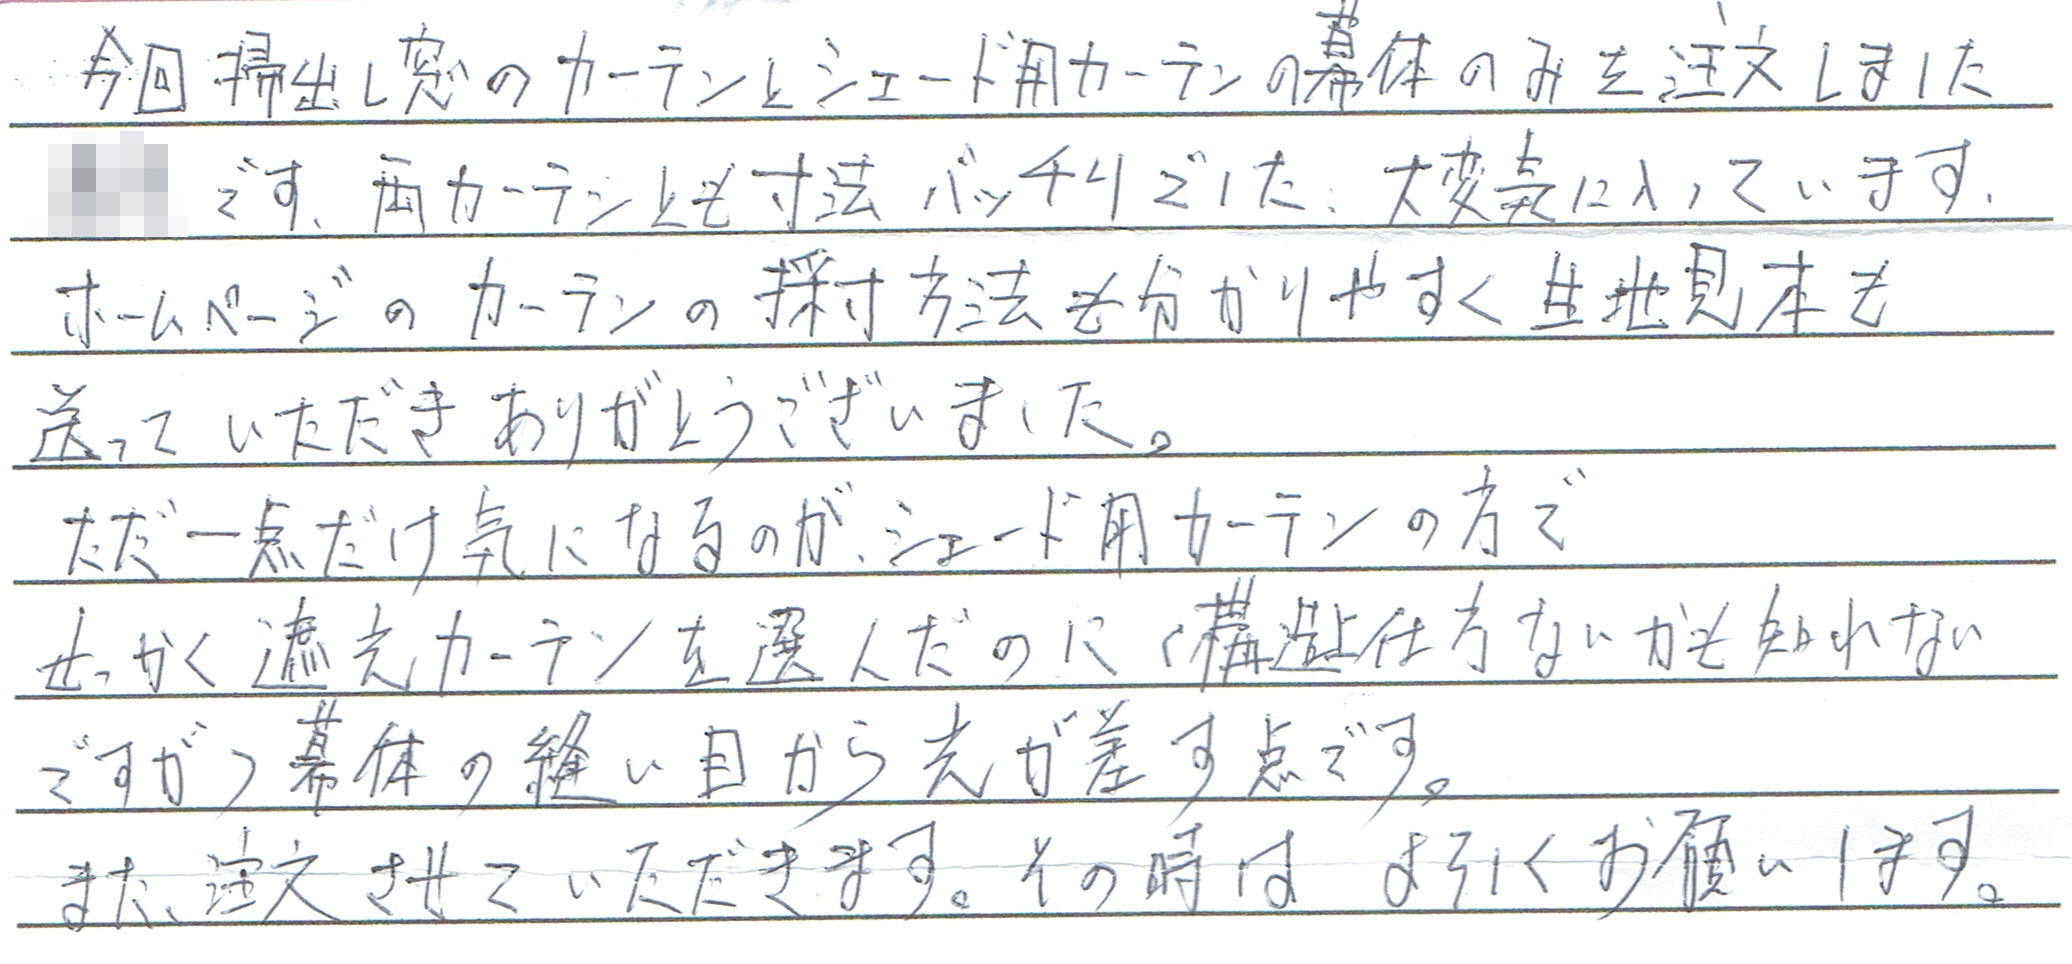 今回掃出し窓のカーテンとシェード用カーテンの幕体のみを注文しました
です、両カーテンとも寸法バッチリでした、大変気に入っています、
ホームページのカーテンの採寸方法も分かりやすく生地見本も
送っていただきありがとうございました。
ただ一点だけ気になるのが、シェード用カーテンの方で
せっかく遮光カーテンを選んだのに（構造上仕方ないかも知れない
ですが）幕体の縫い目から光が差す点です。
また、注文させていただきます。その時はよろしくお願いします。